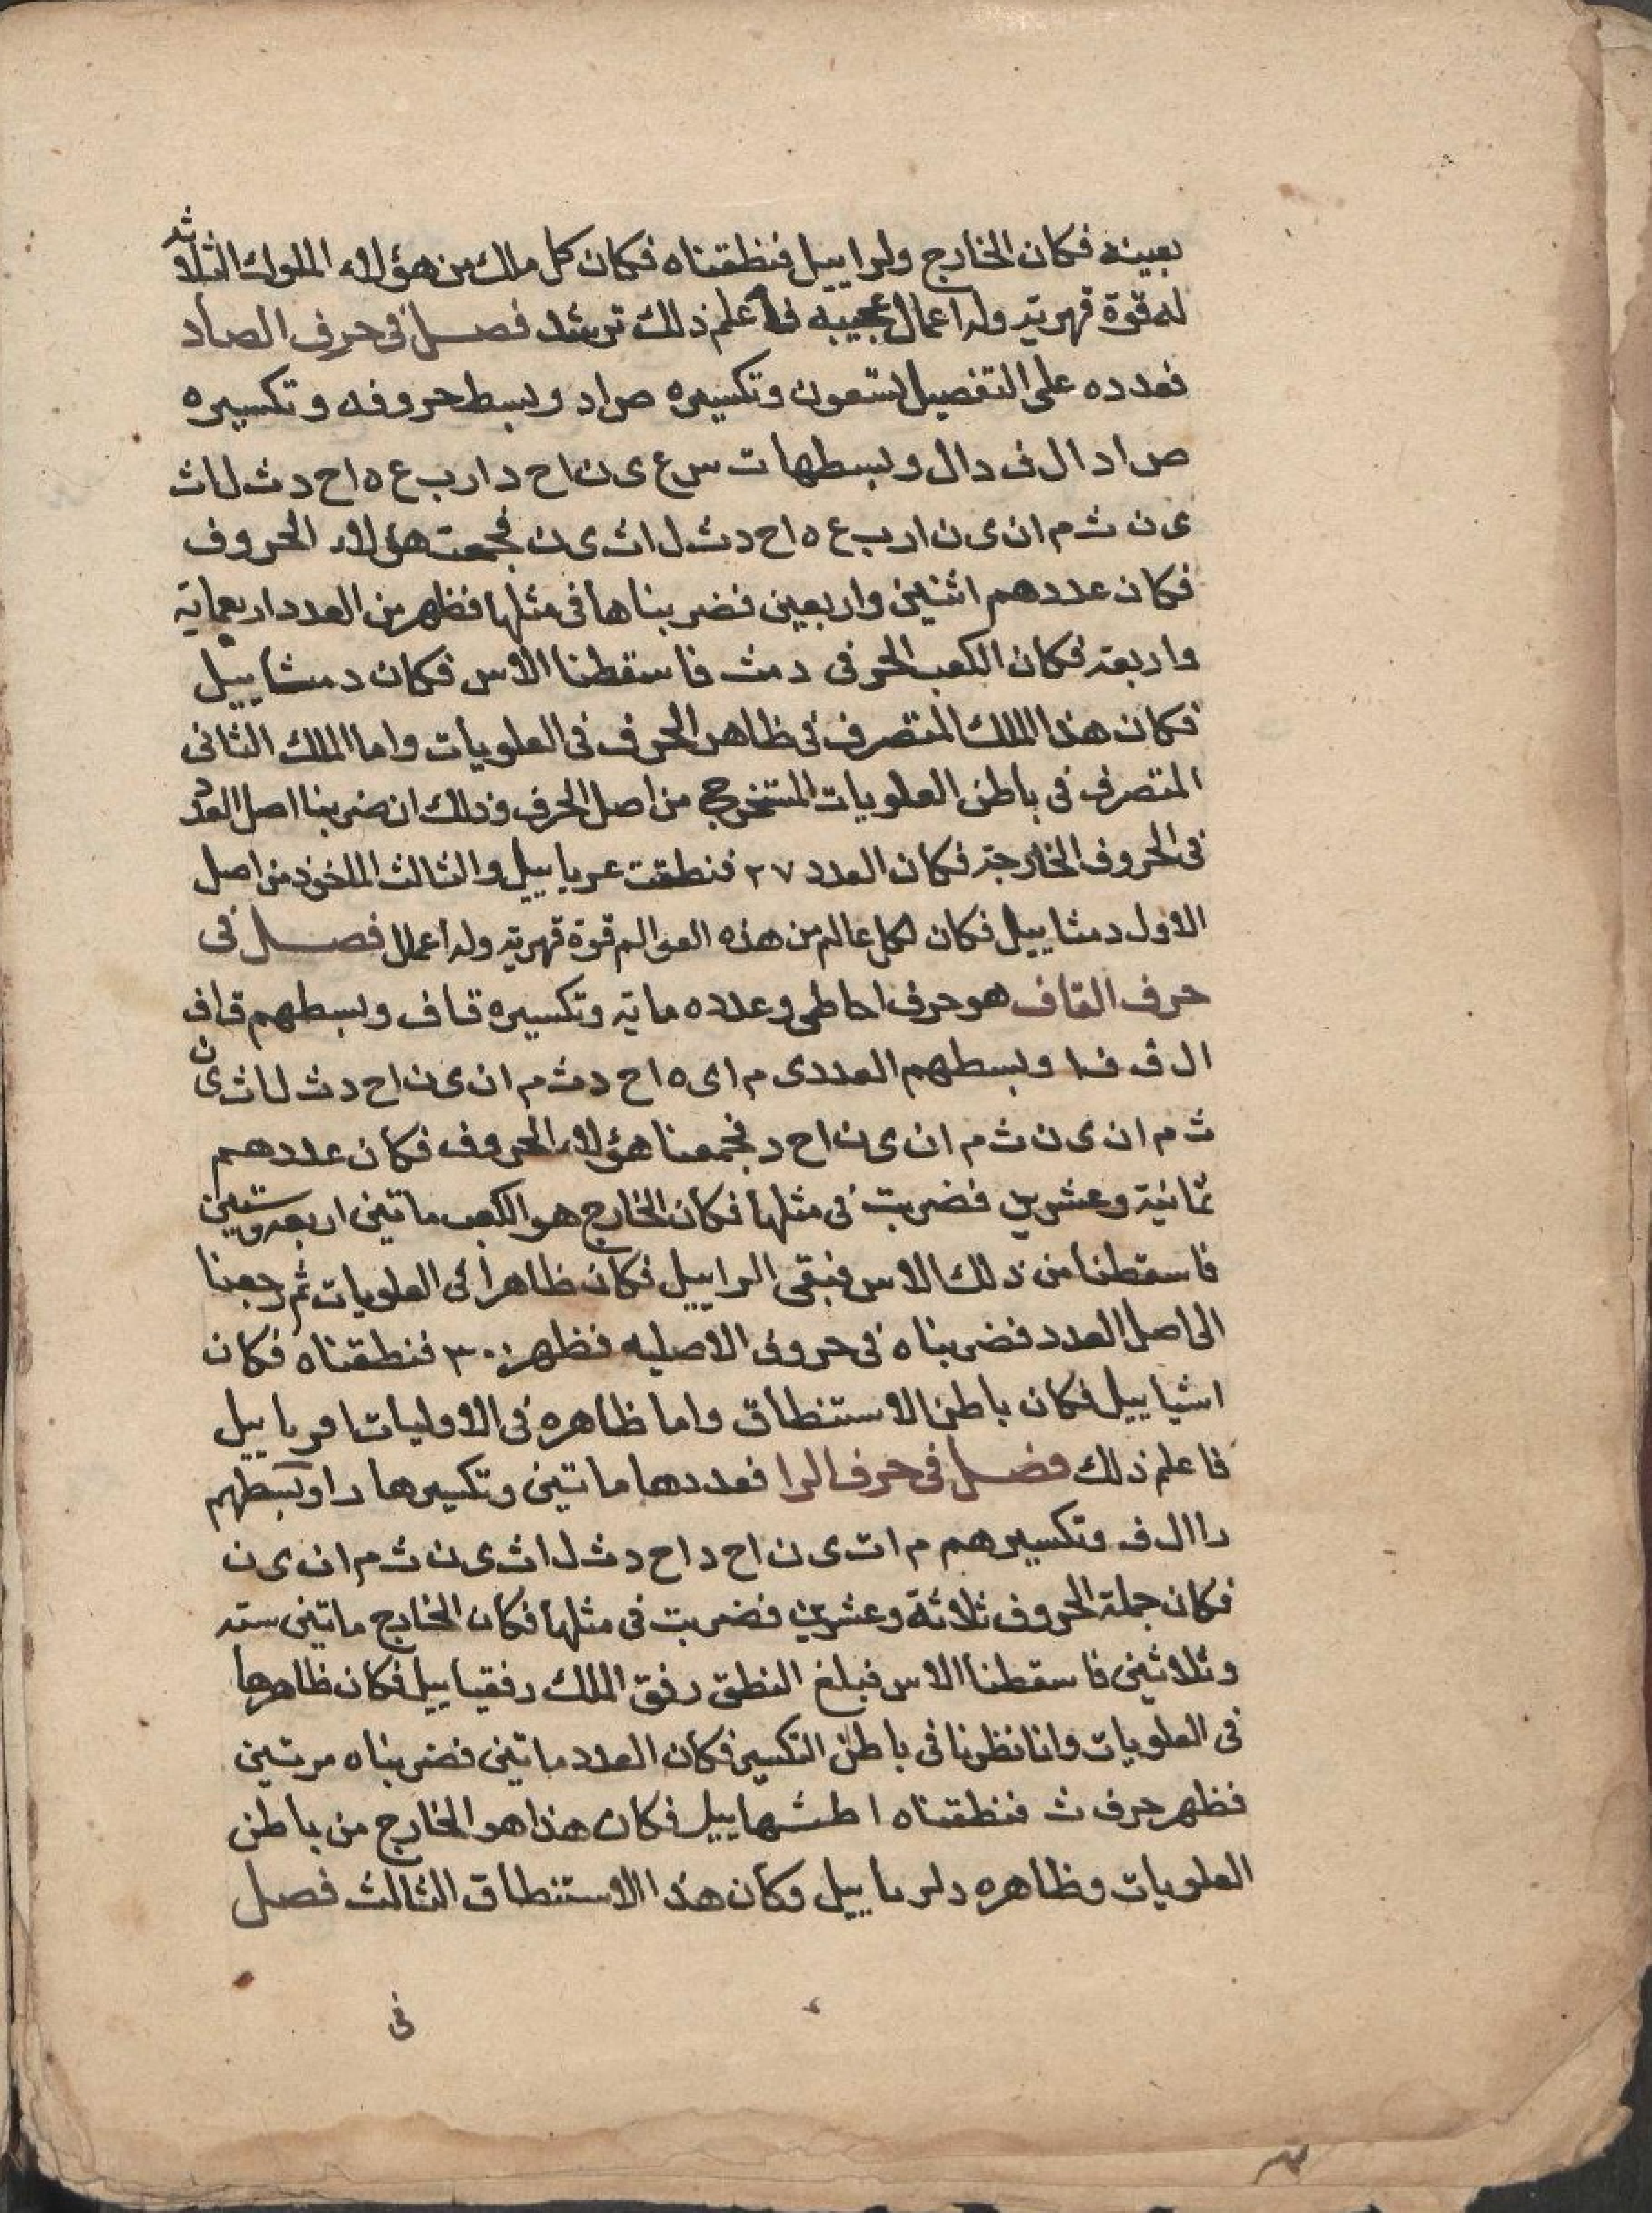 بعينه فكان الخارج ولراييل فنطقناه فكان كل ملك من هؤلاء الملوك الثلاثه
له قوة قهرية وله اعمال عجيبه فاعلم ذلك ترشد فصل في حرف الصاد
فعدده على التفصيل تسعون وتكسيره ص اد وبسط حروفه وتكسيره
ص اد ال ف دال وبسطها ت س ع ى ن اح د ارب ع ه اح د ث ل اث
ى ن ث م ان ى ن ارب ع ه اح د ث ل اث ى ن فجمعت هؤلاء الحروف
فكان عددهم اثنين واربعين فضربناها في مثلها فظهر من العدد اربعماية
واربعة فكان الكعب الحرفى دمث فاسقطنا الاس فكان دمشاييل
فكان هذا الملك المتصرف في ظاهر الحرف في العلويات واما الملك الثاني
المتصرف في باطن العلويات المستخرج من اصل الحرف وذلك ان ضربنا اصل العدد
في الحروف الخارجة فكان العدد ٢٧ فنطقت عرياييل والثالث الماخوذ من اصل
الاول دمثاييل فكان لكل عالم من هذه العوالم قوة قهرية وله اعمال فصل في
حرف القاف هو حرف احاطى وعدده ماية وتكسيره قاف وبسطهم قاف
ال ف ف ا وبسطهم العددى م اى ه اح د ث م ان ى ن اح د ث ل اث ى ن
ث م ان ى ن ث م ان ى ن اح د فجمعنا هؤلاء الحروف فكان عددهم
ثمانية وعشرين فضربت في مثلها فكان الخارج هو الكعب ماتين اربعه وستين
فاسقطنا من ذلك الاس فبقى الراييل فكان ظاهرا في العلويات ثم رجعنا
الى اصل العدد فضربناه في حروف الاصليه فظهر ٣٠ فنطقناه فكان
اشياييل فكان باطن الاستنطاق واما ظاهره في الاوليات امرياييل
فاعلم ذلك فصل في حرف الرا فعددها ماتين وتكسيرها را وبسطهم
را ال ف وتكسيرهم م ات ى ن اح د اح د ث ل اث ى ن ث م ان ى ن
فكان جملة الحروف ثلاثة وعشرين فضربت في مثلها فكان الخارج ماتين سته
وثلاثين فاسقطنا الاس فبلغ النطق رفق الملك رفقياييل فكان ظاهرها
في العلويات وانا نظرنا في باطن التكسير فكان العدد ماتين فضربناه مرتين
فظهر حرف ث فنطقناه اطشهاييل فكان هذا هو الخارج من باطن
العلويات وظاهره دلرياييل وكان هذا الاستنطاق الثالث فصل
في